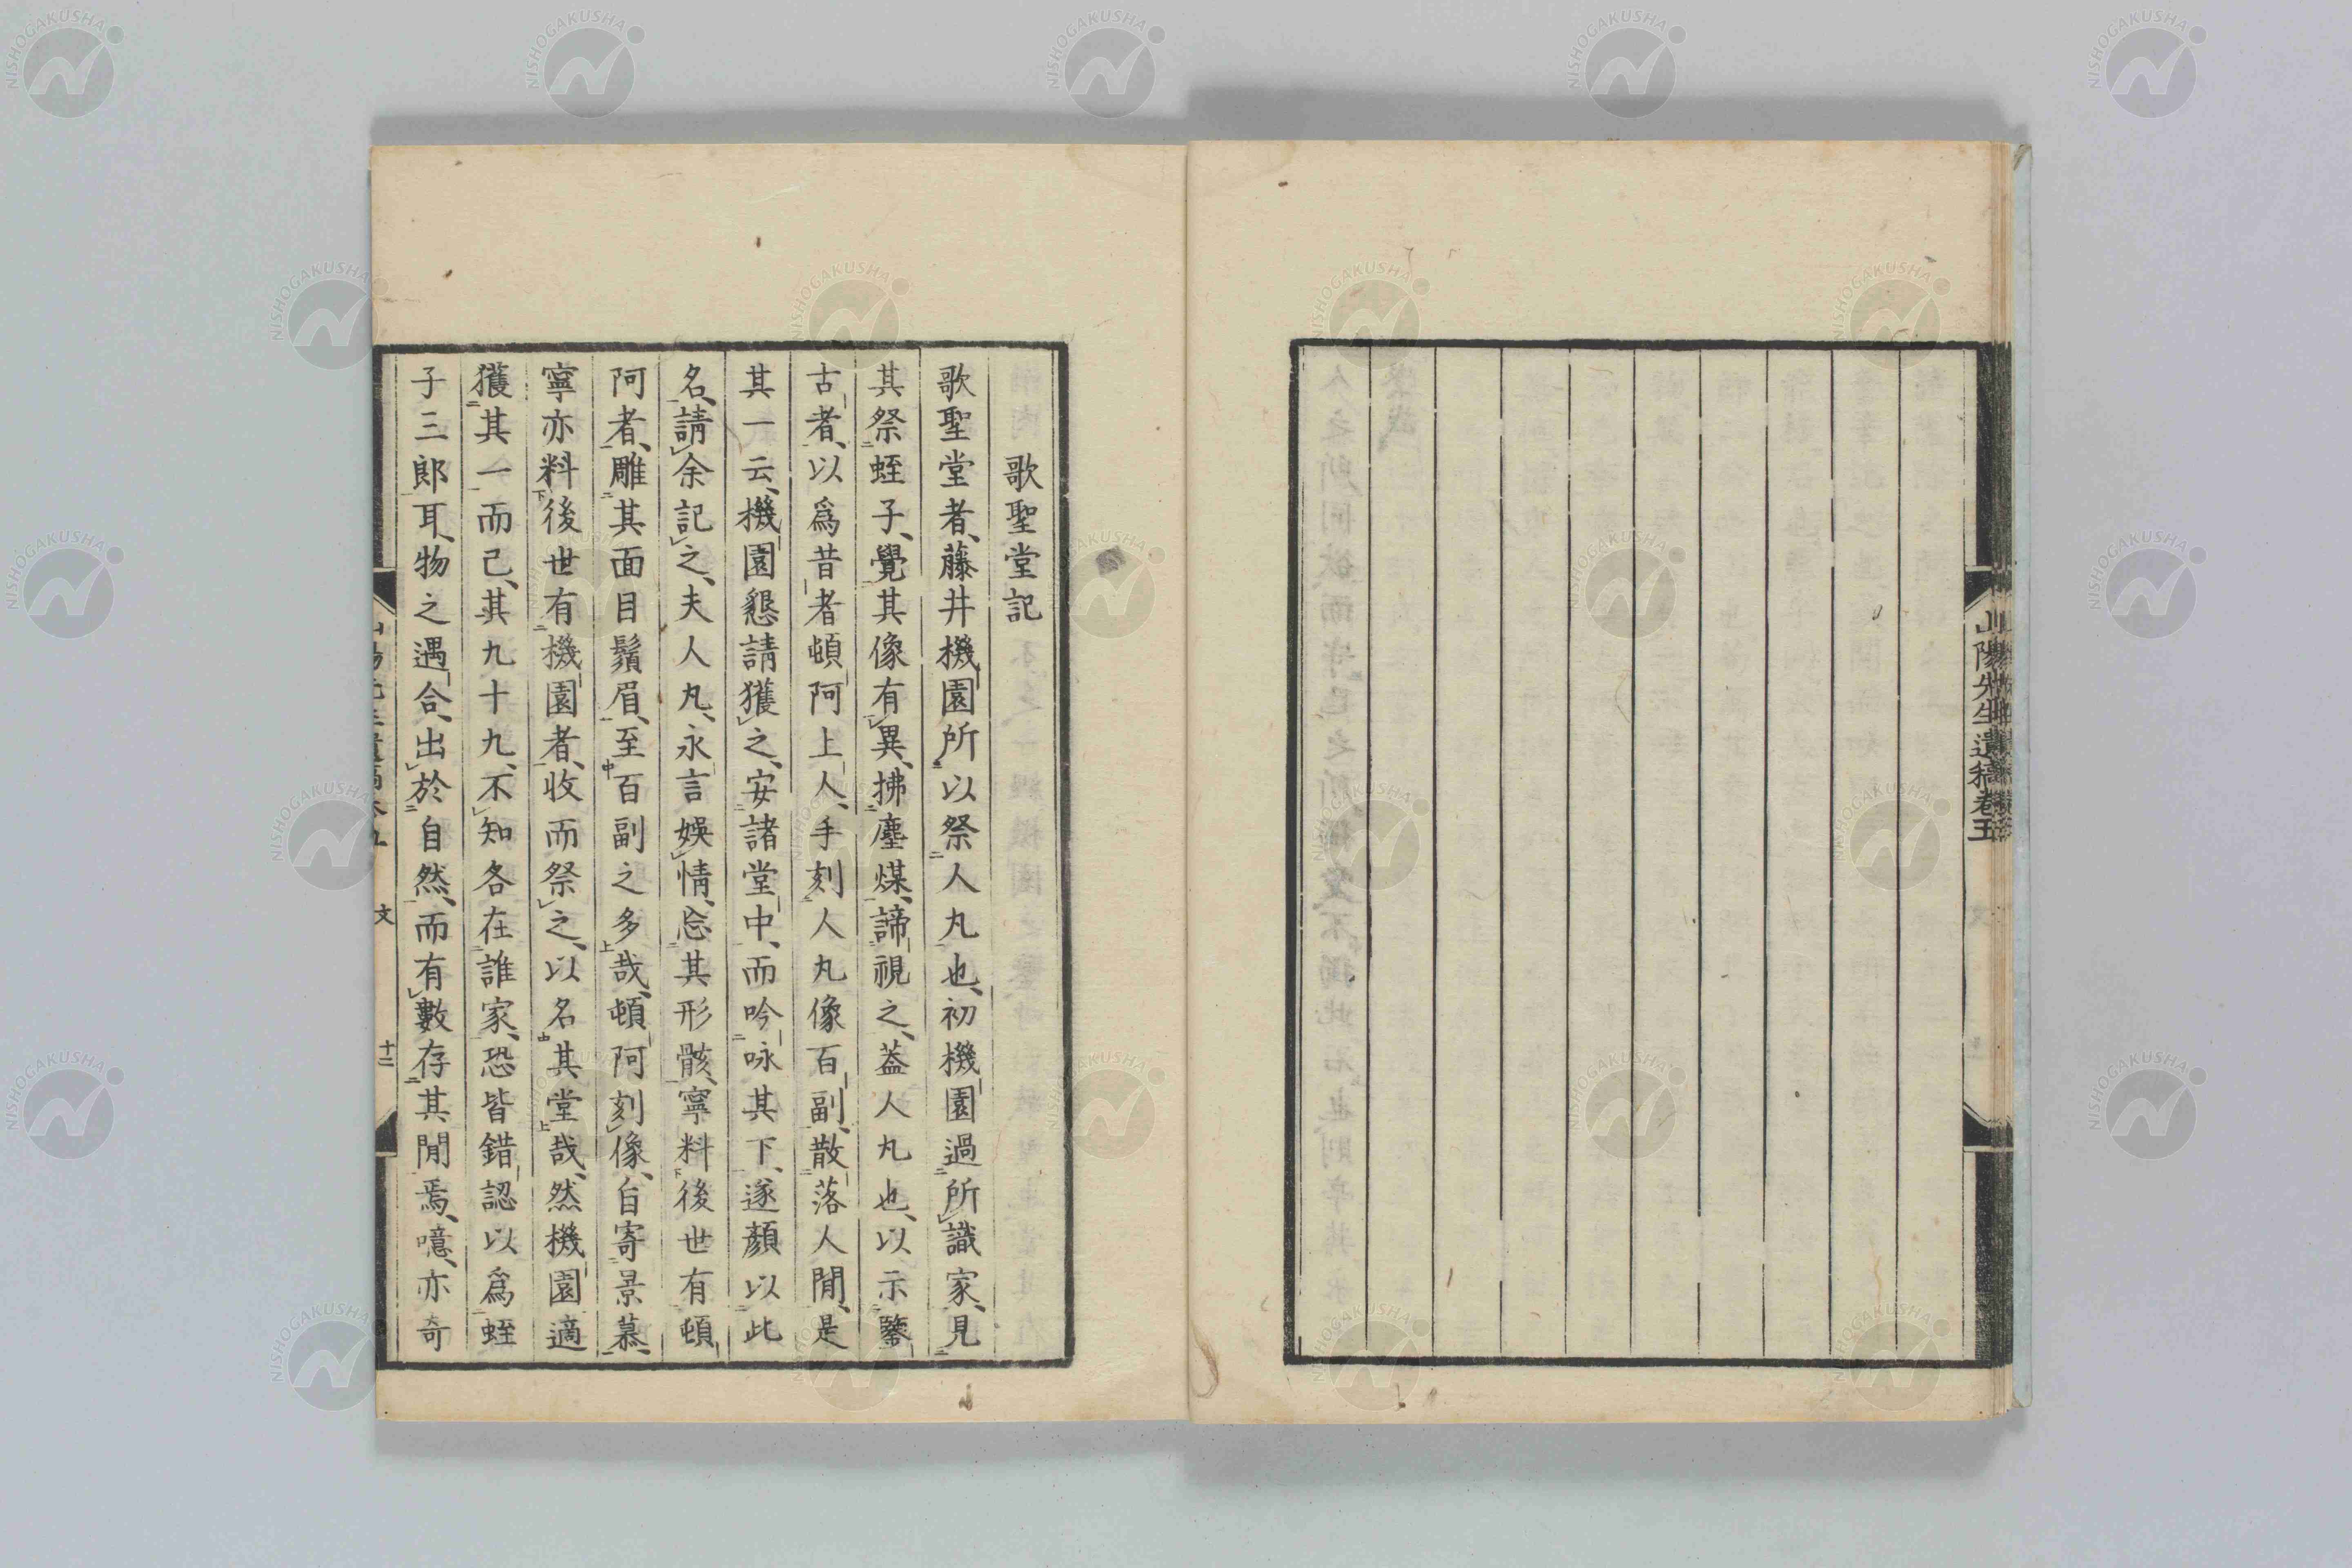 山陽先生遺稿卷五
歌聖堂記
歌聖堂者、藤井機園所以祭人丸也、初機園過所識家、見
其祭蛭子、覺其像有異、拂塵煤、諦視之、葢人丸也、以示鑒
古者、以爲昔者頓阿上人、手刻人丸像百副、散落人閒、是
其一云、機園懇請獲之、安諸堂中、而吟咏其下、遂顏以此
名、請余記之、夫人丸、永言娛情、忘其形骸、寧料後世有頓
阿者、雕其面目鬚眉、至百副之多哉、頓阿刻像、自寄景慕、
寧亦料後世有機園者、收而祭之、以名其堂哉、然機園適
獲其一而已、其九十九、不知各在誰家、恐皆錯認以爲蛭
子三郎耳、物之遇合、出於自然、而有數存其閒焉、噫、亦奇
文
十二
NISHOGAKUSHA